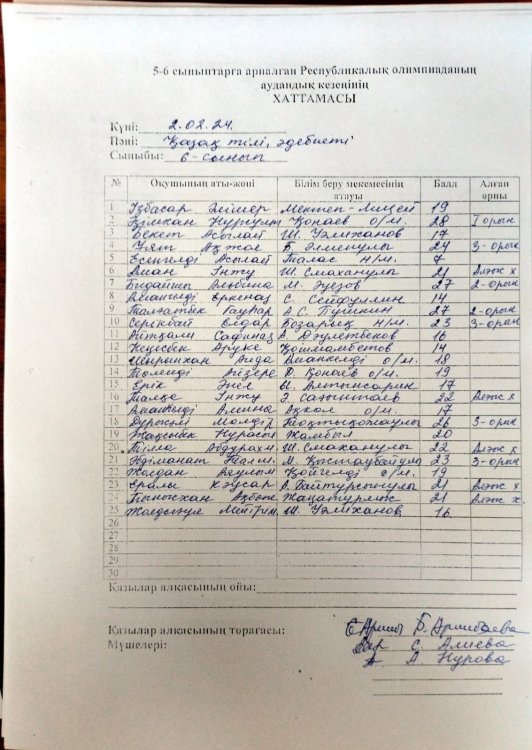 5-6 сыныптарға арналған Республикалық олимпиаданың
аудандық кезеңінің
ХАТТАМАСЫ
Күні: 2.02.24.
Пәні: Қазақ тілі, әдебиеті
Сыныбы: 6-сынып
№ Оқушының аты-жөні Білім беру мекемесінің атауы Балл Алған орны
1 Ізбасар Әлішер Мектеп-Лицей 19
2 Әлімхан Нұрчлым Қонаев о/м. 28 I орын
3 Бекет Асылай Ш. Уәлиханов 17
4 Ұят Ақжас Б. Әлменұлы 24 3-орын
5 Есенгелді Асылай Талас н/м. 7
6 Аман Інжу Ш. Смаханұлы 21 Алғыс х
7 Бидайшы Альбина М. Әуезов 27 2-орын
8 Амангелді Еркеназ С. Сейфуллин 14
9 Талғатбек Гауһар А.С. Пушкин 27 2-орын
10 Серікбай Елдар Бозарық н/м. 23 3-орын
11 Айтқали Сафиназ А. Дәулетбеков 16
12 Кеңесбек Аруке Қошмамбетов 14
13 Шырынхан Аида Аманкелді о/м. 18
14 Төленді Айзере Д. Қонаев о/м. 19
15 Ерік Әнел Ы. Алтынсарин 17
16 Талқе Інжу Ә. 22 Алғыс х
17 Амангелді Амина Ақкөл о/м. 17
18 Дүрмелі Мөлдір Тоқтықожаұлы 26 3-орын
19 Жақынбек Нұрасыл Жамбыл 20
20 Тілла Абдурахм. Ш. Смаханұлы 22 Алғыс х
21 М. Қыстаубайұлы 23 3-орын
22 Жолдан Ақным Қайкелді о/м. 19
23 Ералы Кәусар А. Байтұрсынұлы 21 Алғыс х
24 Тынысхан Ақбөпе Жаңатұрмыс 21 Алғыс х.
25 Жолдыгүл Мейірім Ш. Уәлиханов 16
26
27
28
29
30
Қазылар алқасының ойы:
Қазылар алқасының торағасы: Б. Арынбаева
Мүшелері: С. Алиева
А. Нурова